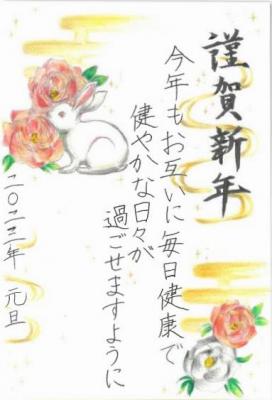 謹賀新年
今年もお互いに毎日健康で
健やかな日々が
過ごせますように
二〇二三年 元旦